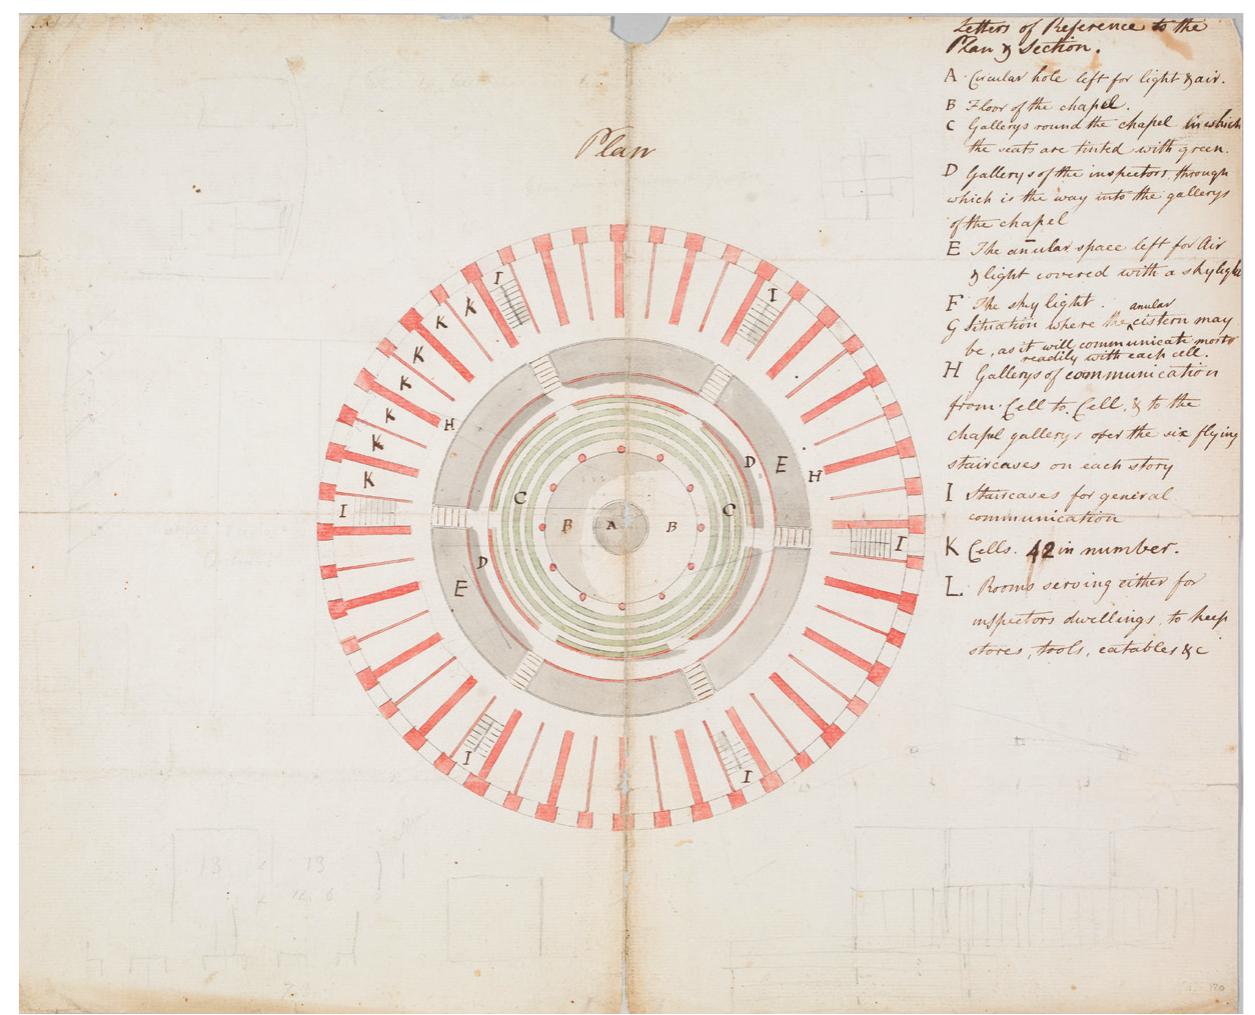 Plan
Letters of Reference to the
Plan & Section.
A Circular hole left for light & air.
B Floor of the chapel.
C Gallerys round the chapel in which
the seats are tinted with green.
D Gallerys of the inspectors through
which is the way into the gallerys
of the chapel
E The anular space left for Air
& light covered with a skylight
F The sky light.
anular
G Situation where the cistern may
be, as it will communicate most
readily with each cell.
H Gallerys of communication
from Cell to Cell, & to the
chapel gallerys over the six flying
staircases on each story
I Staircases for general
communication
K Cells. 42 in number.
L. Rooms serving either for
inspectors dwellings, to keep
stores, tools, eatables &c
I I
K K
K
K
K
H
K
K
I
C
D E H
C
B A B
I
D
E
I
I
13 13
120